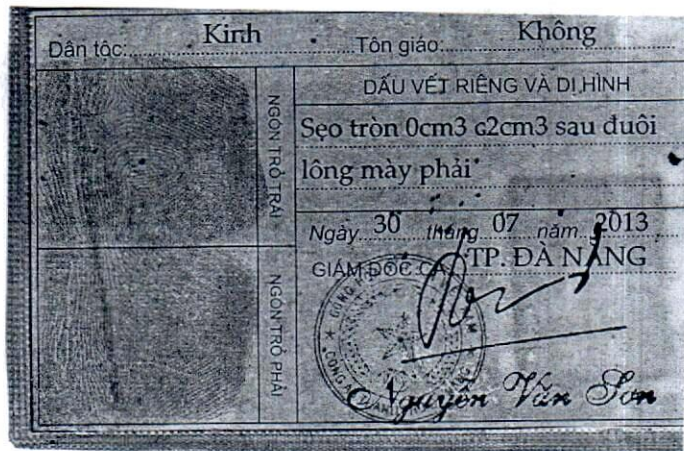 Dân tộc: Kinh Tôn giáo: Không
NGÓN TRỎ TRÁI
DẤU VẾT RIÊNG VÀ DỊ HÌNH
Sẹo tròn 0cm3 c2cm3 sau đuôi
lông mày phải
Ngày 30 tháng 07 năm 2013
GIÁM ĐỐC CA TP. ĐÀ NẴNG
NGÓN TRỎ PHẢI
Nguyễn Văn Sơn